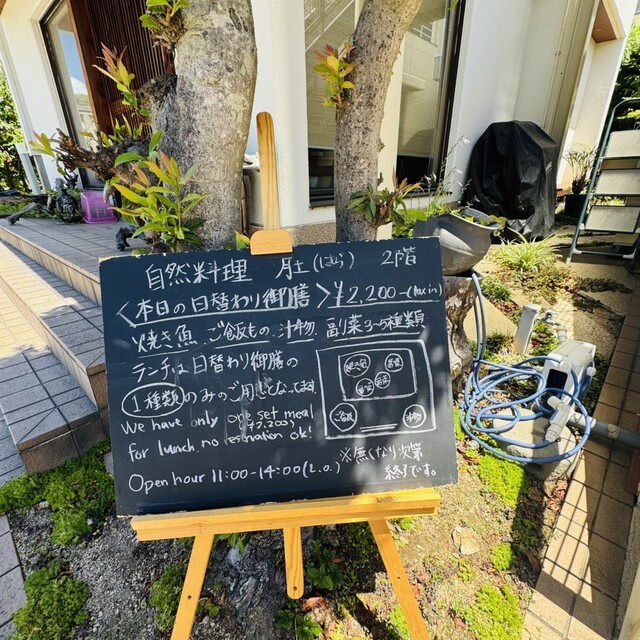 自然料理 月土(はら) 2階
<本日の日替わり御膳>¥2,200-(tax in)
焼き魚、ご飯もの、汁物、副菜3~5種類
ランチは日替わり御膳の
1種類のみのご用意となってます。
We have only one set meal
(¥2,200)
for lunch. no reservation ok!
Open hour 11:00-14:00(L.o.)
※無くなり次第
終りです。
ご飯
汁物